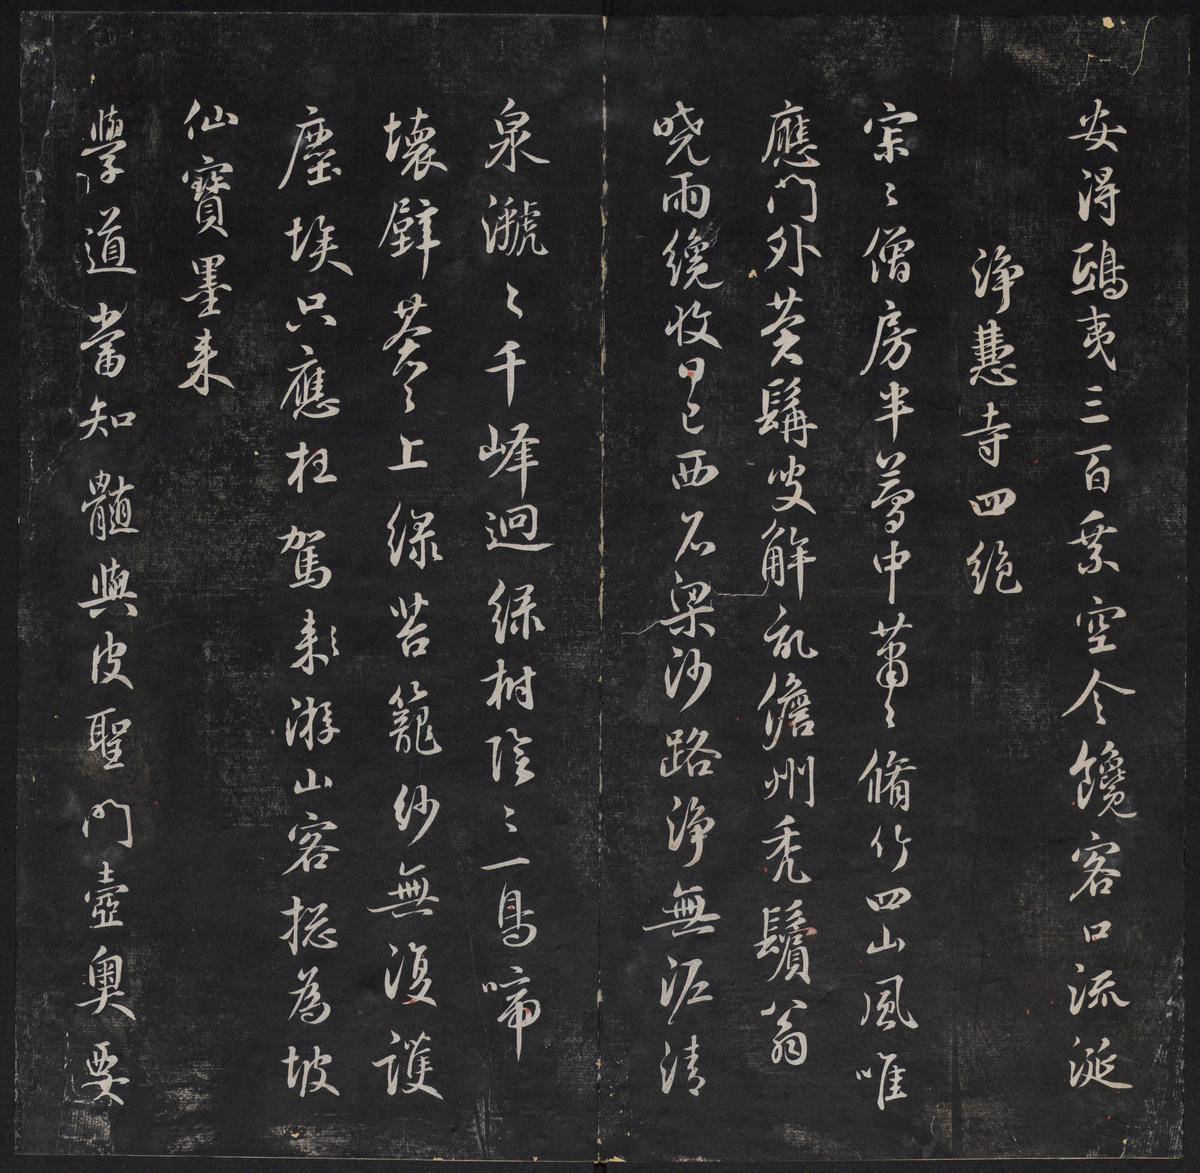 安得鴟夷三百乘空令饞客口流涎
淨慧寺四絕
宗〻僧房半夢中蕭〻脩竹四山風唯
應門外黃鬚叟解訊儋州禿鬢翁
曉雨纔收日已西石梁沙路淨無泥清
泉㶁〻千峰迥綠樹陰〻一鳥啼
壞壁蒼〻上綠苔籠紗無復護
塵埃只應枉駕游山客揔為坡
仙寶墨来
學道當知髓與皮聖門壼奧要